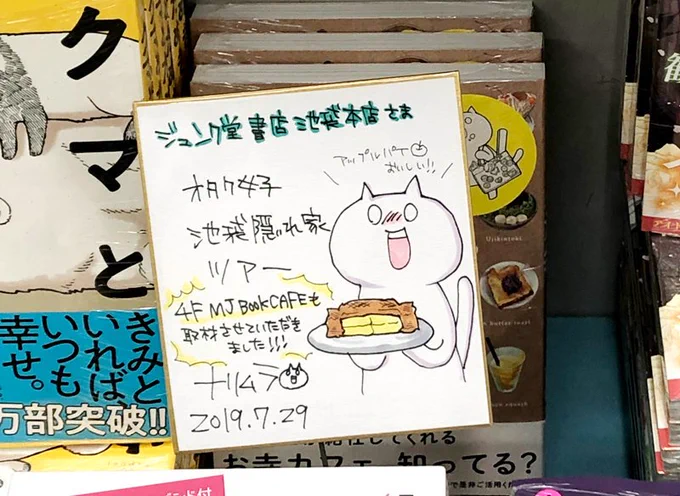 クマと
きみと
いれば
いつも
幸せ。
万部突破!!
ジュンク堂書店池袋本店さま
アップルパイ
おいしい!!
オタク女子
池袋隠れ家
ツアー
4F MJ BOOK CAFEも
取材させていただき
ました!!!
ナリムラ
2019.7.29
Ujikintoki
butter toast
squash
してくれる
お寺カフェ、知ってる?